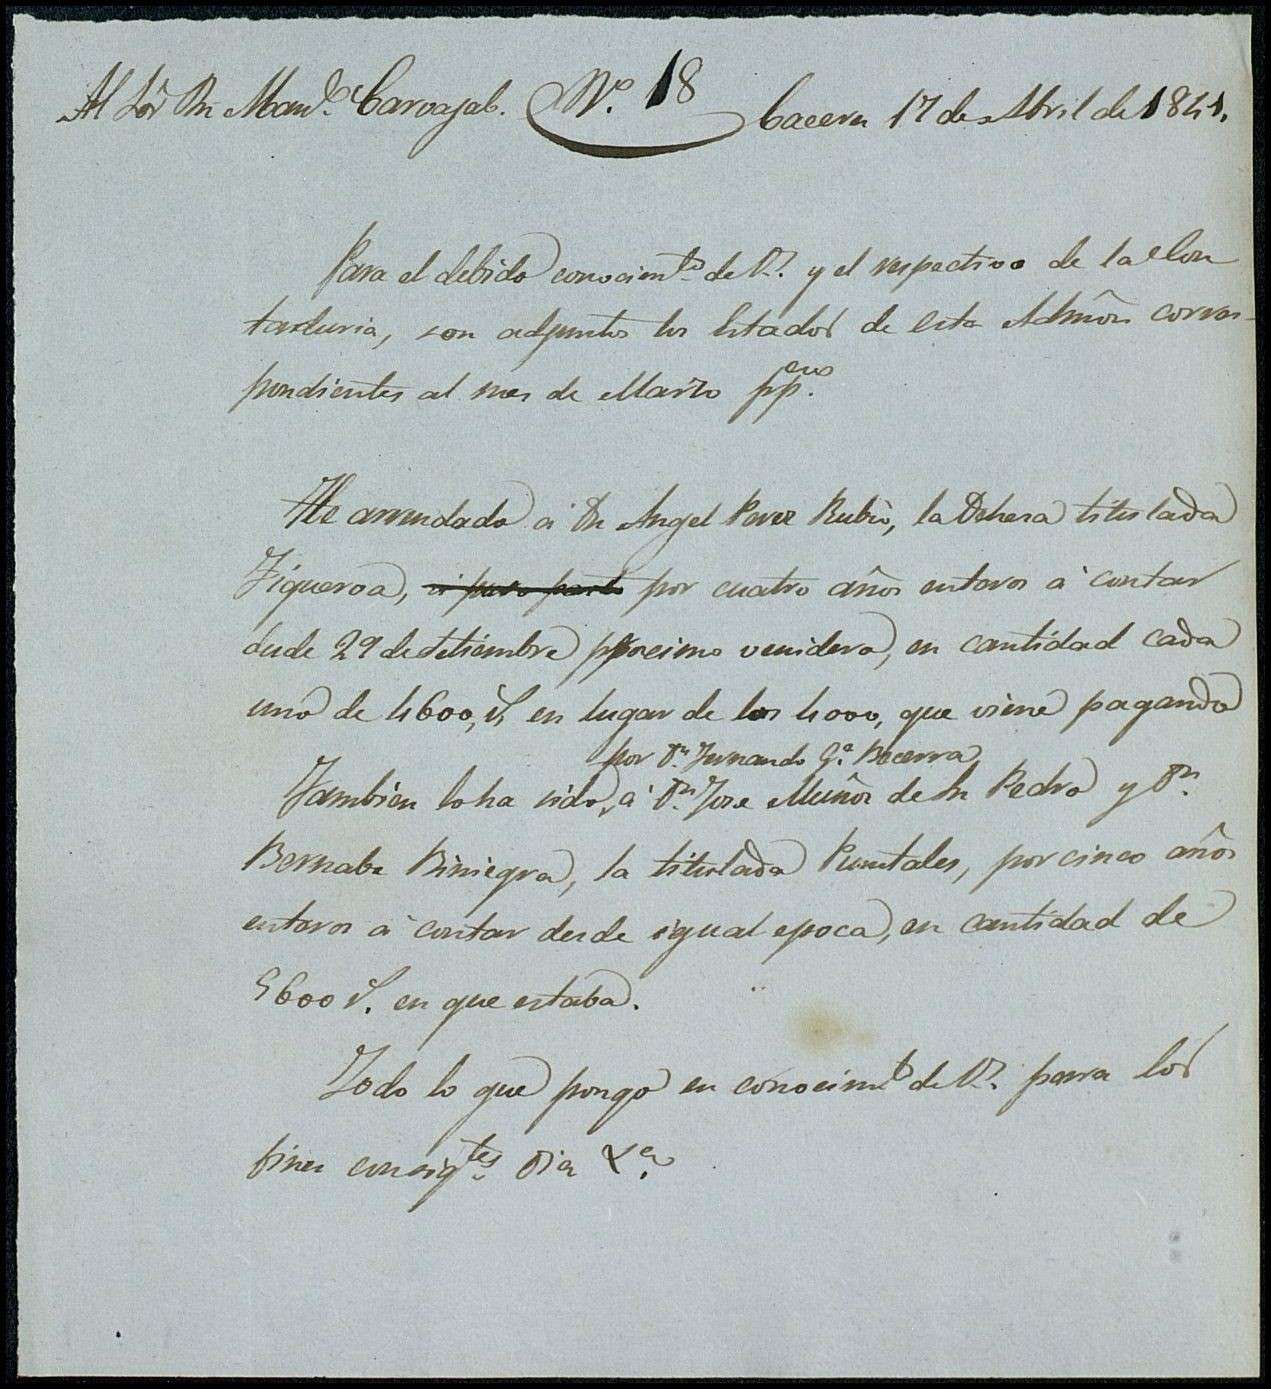 Al Sor Dn Manl. Carvajal. No. 18 Caceres 17 de Abril de 1841.
Para el debido conocimto. de V. y el respectivo de la Con
taduria, son adjuntos los Estados de esta Admôn corres-
pondientes al mes de Marzo ppeno.
He arrendado á Dn Angel Perez Rubio, la Dehesa titulada
Figueroa, por cuatro años enteros á contar
desde 29 de Setiembre procsimo venidero, en cantidad cada
uno de 4600, rs, en lugar de los 4000, que viene pagando
por Dn. Fernando Ga. Becerra
Tambien lo ha sido, á Dn. Jose Muñoz de Sn Pedro y Dn.
Bernabe Biniegra, la titulada Puntales, por cinco años
enteros á contar desde igual epoca, en cantidad de
5600 rs. en que estaba.
Todo lo que pongo en conocimto de V. para los
fines consigtes. Dios &a.